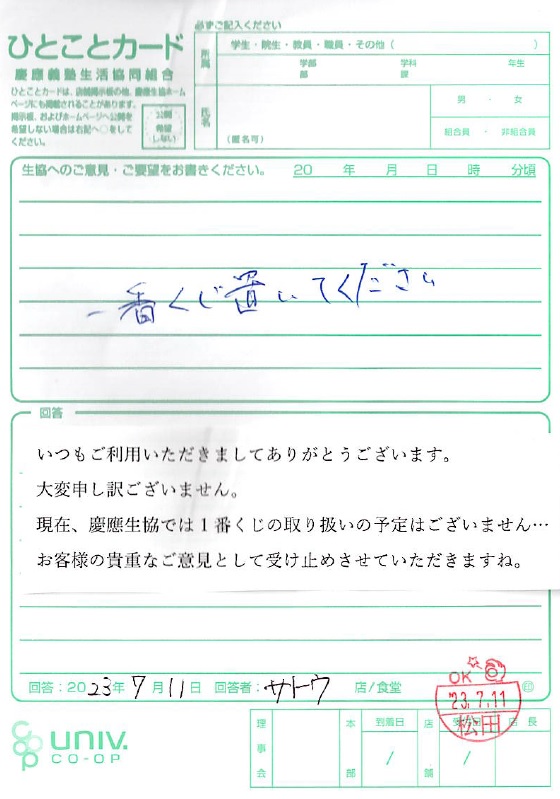 必ずご記入ください
ひとことカード
慶應義塾生活協同組合
ひとことカードは、店舗掲示板の他、慶應生協ホーム
ページにも掲載されることがあります。
掲示板、およびホームページへ公開を
希望しない場合は右記へ○をして
ください。
公開
希望
しない
所属
学生・院生・教員・職員・その他（ ）
学部 学科 年生
部 課
氏名
（匿名可）
男 ・ 女
組合員 ・ 非組合員
生協へのご意見・ご要望をお書きください。 20 年 月 日 時 分頃
一番くじ置いてください
回答
いつもご利用いただきましてありがとうございます。
大変申し訳ございません。
現在、慶應生協では１番くじの取り扱いの予定はございません…
お客様の貴重なご意見として受け止めさせていただきますね。
回答：2023年 7月11日 回答者：サトウ 店/食堂
OK
'23.7.11
松田
univ.
CO-OP
理事会
本部
到着日
/
店舗
/
店長